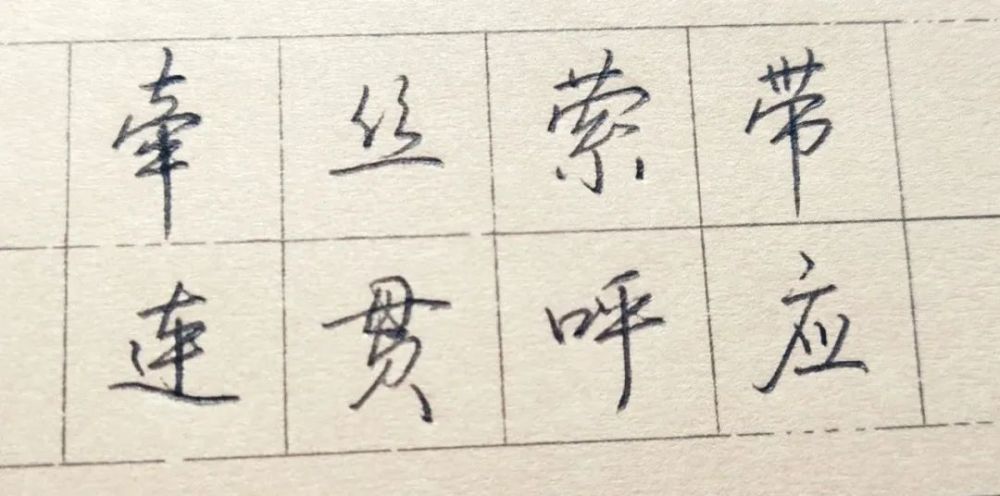 牵丝萦带
连贯呼应